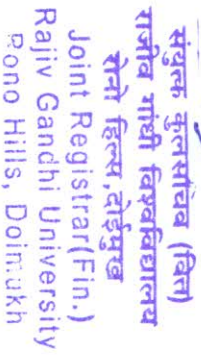 संयुक्त कुलसचिव (वित्त)
राजीव गाँधी विश्वविद्यालय
रोनो हिल्स, दोईमुख
Joint Registrar(Fin.)
Rajiv Gandhi University
Rono Hills, Doimukh